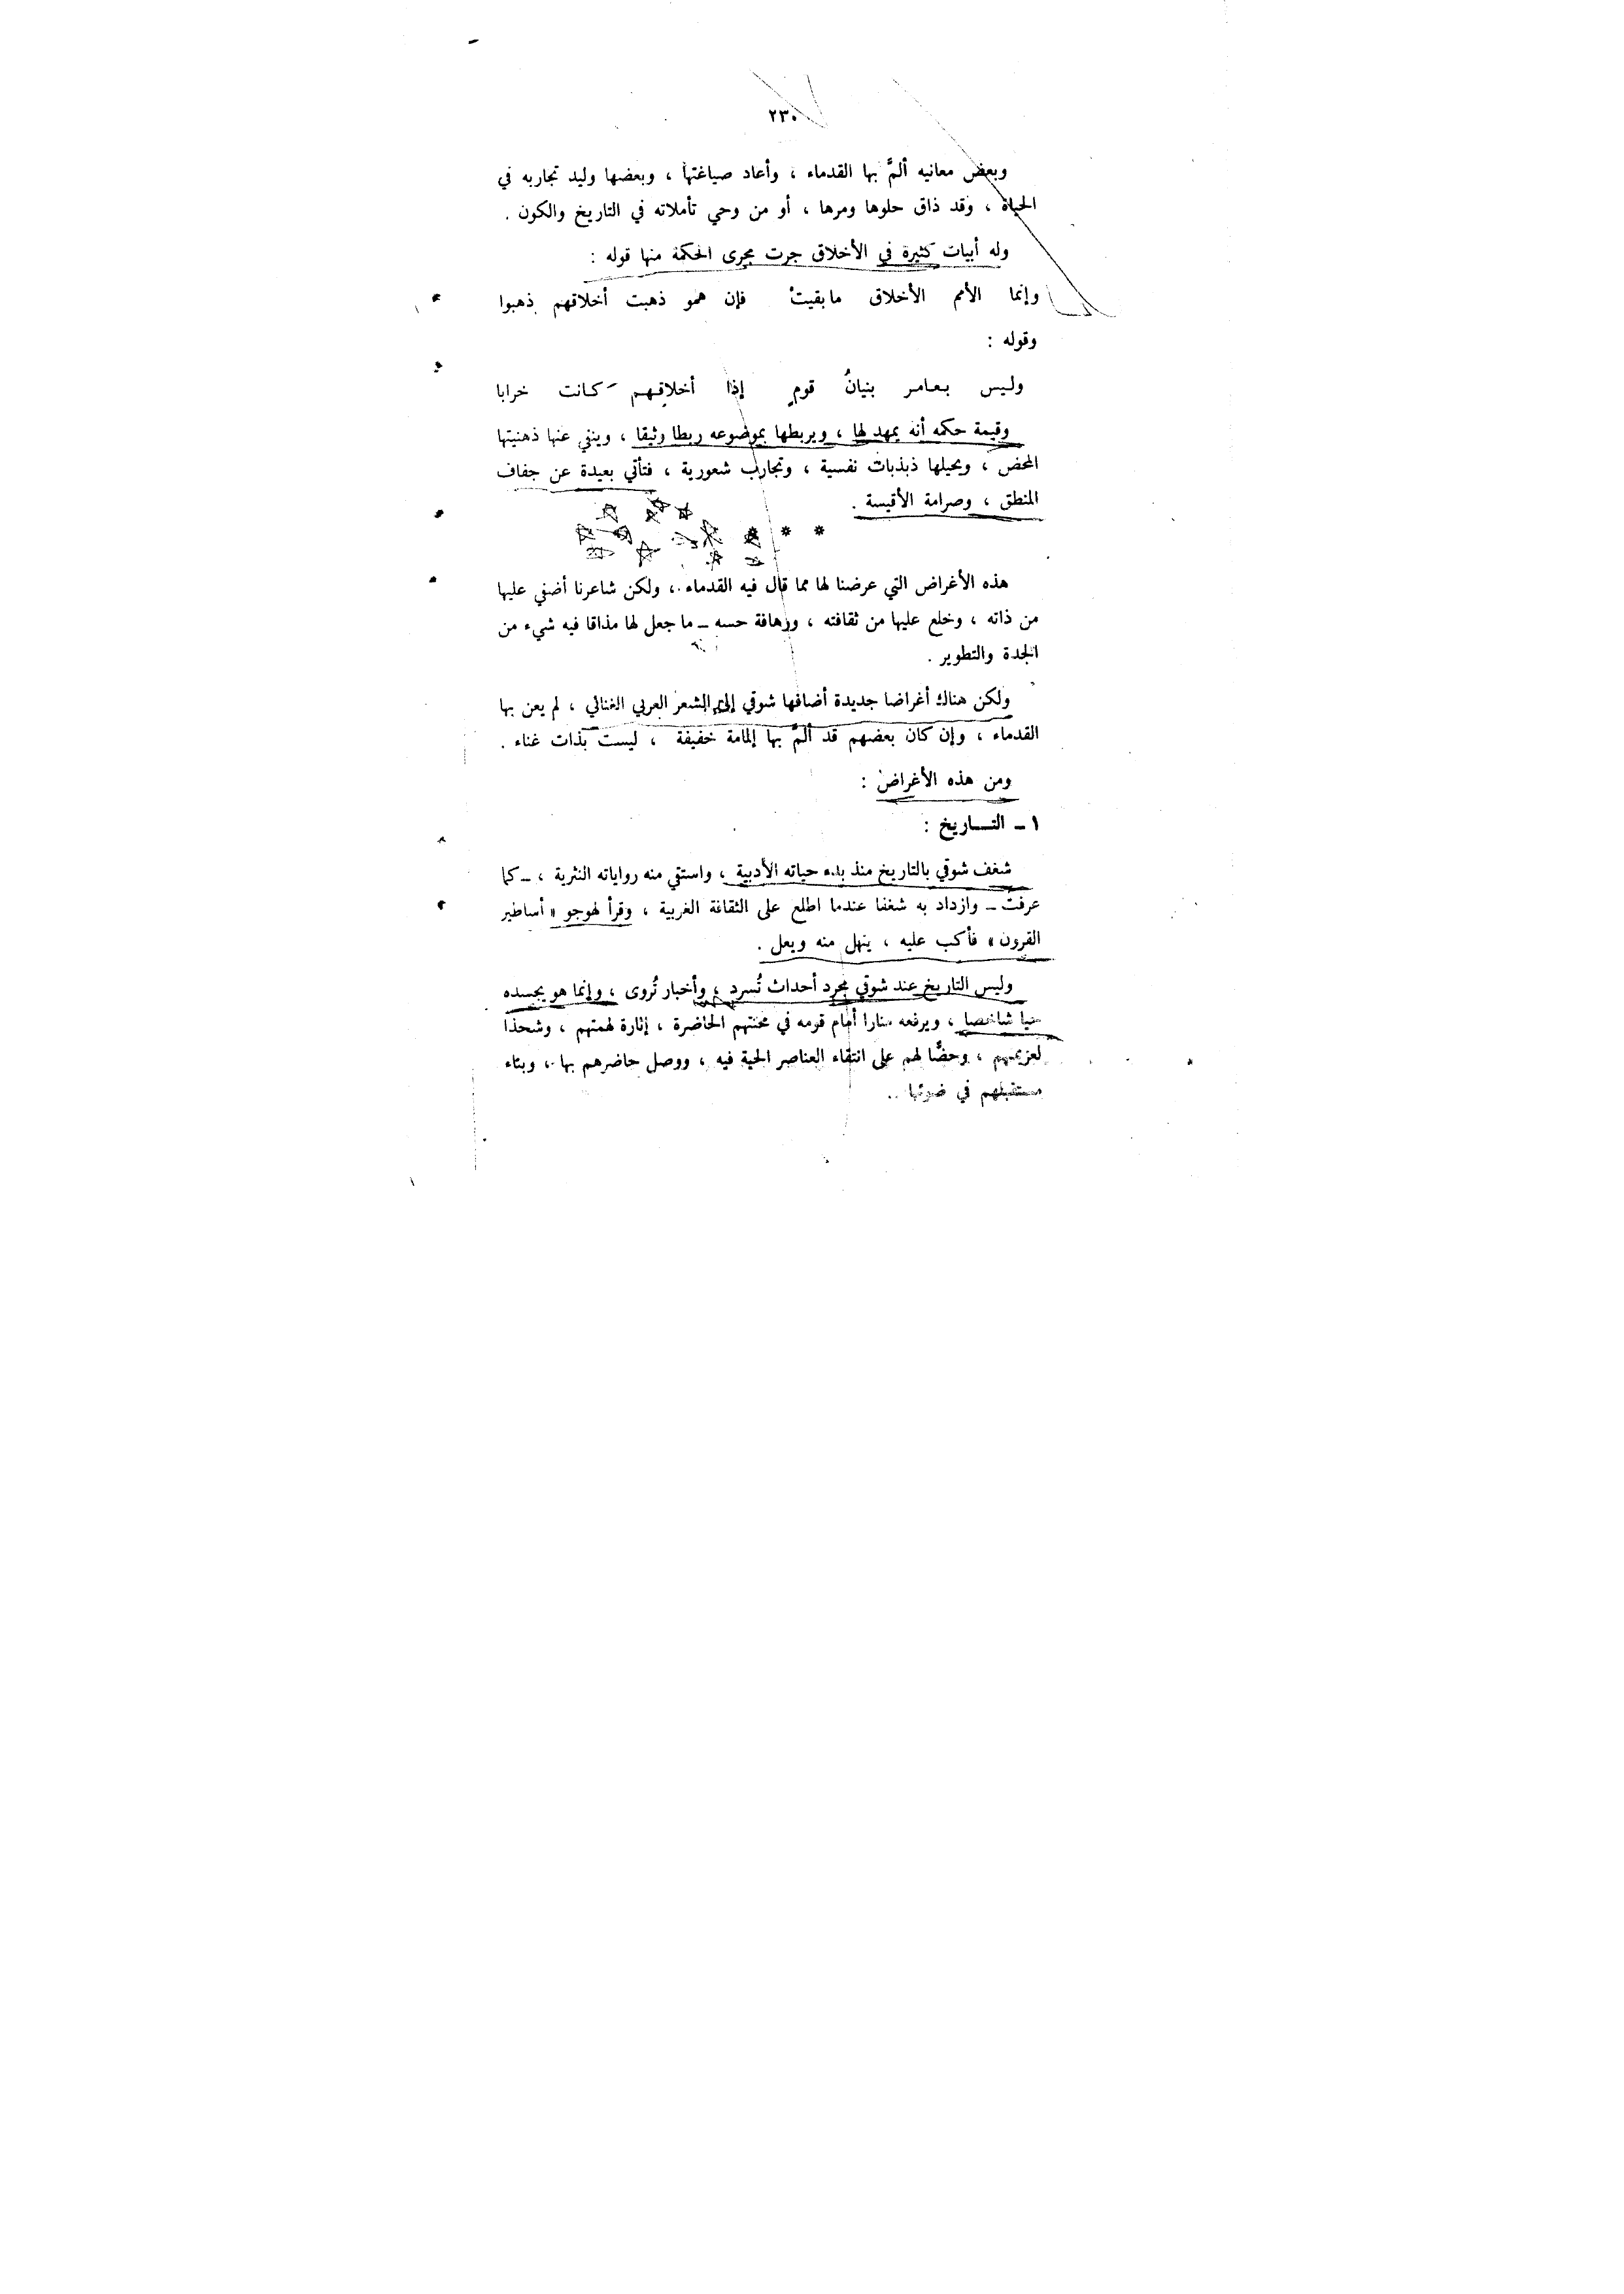 ٢٣٠
وبعض معانيه ألمَّ بها القدماء ، وأعاد صياغتها ، وبعضها وليد تجاربه في
الحياة ، وقد ذاق حلوها ومرها ، أو من وحي تأملاته في التاريخ والكون .
وله أبيات كثيرة في الأخلاق جرت مجرى الحكمة منها قوله :
وإنما الأمم الأخلاق مابقيتْ فإن همو ذهبت أخلاقهم ذهبوا
وقوله :
وليس بعامر بنيانُ قومٍ إذا أخلاقهم كانت خرابا
وقيمة حكمه أنه يمهد لها ، ويربطها بموضوعه ربطا وثيقا ، وينفي عنها ذهنيتها
المحض ، ويحيلها ذبذبات نفسية ، وتجارب شعورية ، فتأتي بعيدة عن جفاف
المنطق ، وصرامة الأقيسة .
* * *
هذه الأغراض التي عرضنا لها مما قال فيه القدماء ، ولكن شاعرنا أضفى عليها
من ذاته ، وخلع عليها من ثقافته ، ورهافة حسه ــ ما جعل لها مذاقا فيه شيء من
الجدة والتطوير .
ولكن هناك أغراضا جديدة أضافها شوقي إلى الشعر العربي الغنائي ، لم يعن بها
القدماء ، وإن كان بعضهم قد ألمَّ بها إلمامة خفيفة ، ليست بذات غناء .
ومن هذه الأغراض :
١ ــ التــاريخ :
شغف شوقي بالتاريخ منذ بدء حياته الأدبية ، واستقى منه رواياته النثرية ، ــ كما
عرفت ــ وازداد به شغفا عندما اطلع على الثقافة الغربية ، وقرأ لهوجو « أساطير
القرون » فأكب عليه ، ينهل منه ويعل .
وليس التاريخ عند شوقي مجرد أحداث تُسرد ، وأخبار تُروى ، وإنما هو يجسده
حيا شاخصا ، ويرفعه منارا أمام قومه في محنتهم الحاضرة ، إثارة لهمتهم ، وشحذا
لعزيمتهم ، وحضًّا لهم على انتقاء العناصر الحية فيه ، ووصل حاضرهم بها ، وبناء
مستقبلهم في ضوئها ..